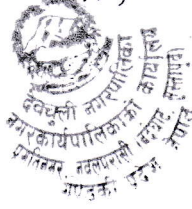 देवचुली नगरपालिका
नगर कार्यपालिकाको कार्यालय
प्रगतिनगर, नवलपरासी
गण्डकी प्रदेश, नेपाल